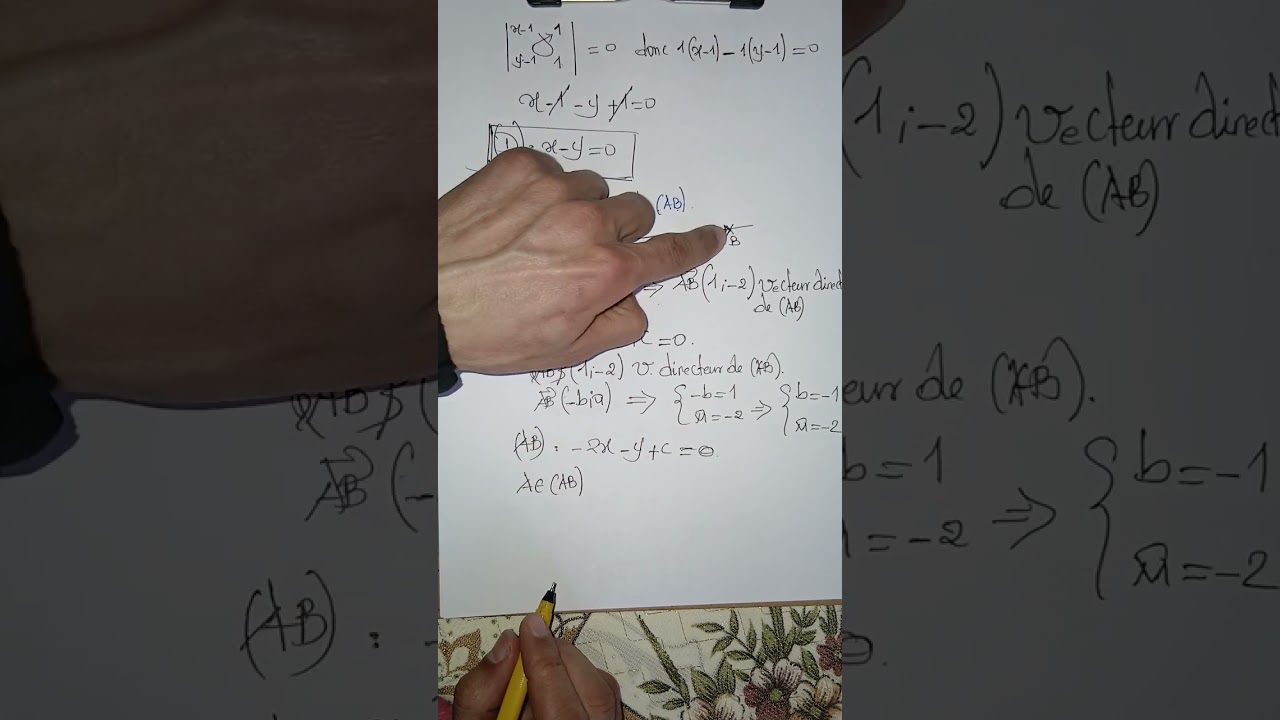 | x-1 1 |
| y-1 1 | = 0 donc 1(x-1) - 1(y-1) = 0
x - 1 - y + 1 = 0
: x - y = 0
(AB).
B
⇒ AB(1;-2) vecteur direct
de (AB)
C = 0.
(1;-2) v. directeur de (AB).
AB(-b;a) ⇒ { -b = 1 ⇒ { b = -1
a = -2 a = -2
(AB) : -2x - y + c = 0
A ∈ (AB)